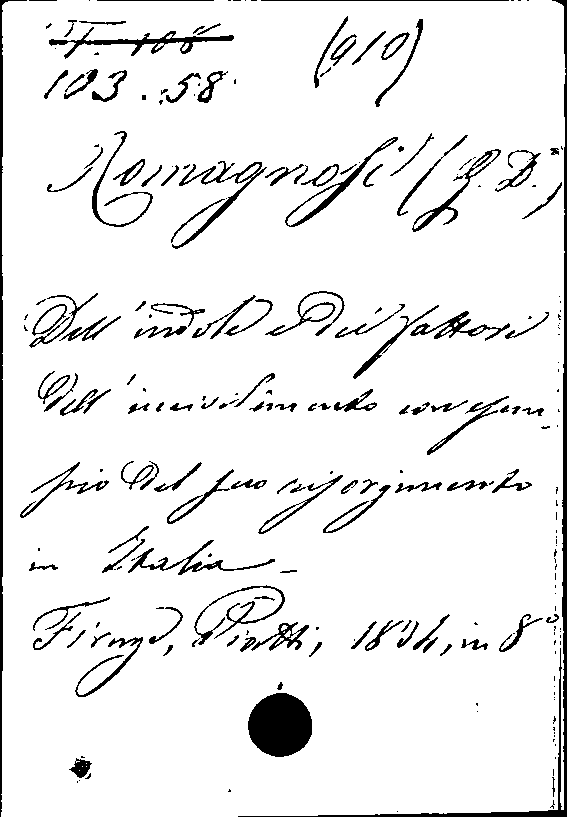 T. 108 (910)
103.58.
Romagnosi (G. D.)
Dell'indole e dei fattori
dell'incivilimento con esem-
pio del suo risorgimento
in Italia -
Firenze, Piatti, 1834, in 8°